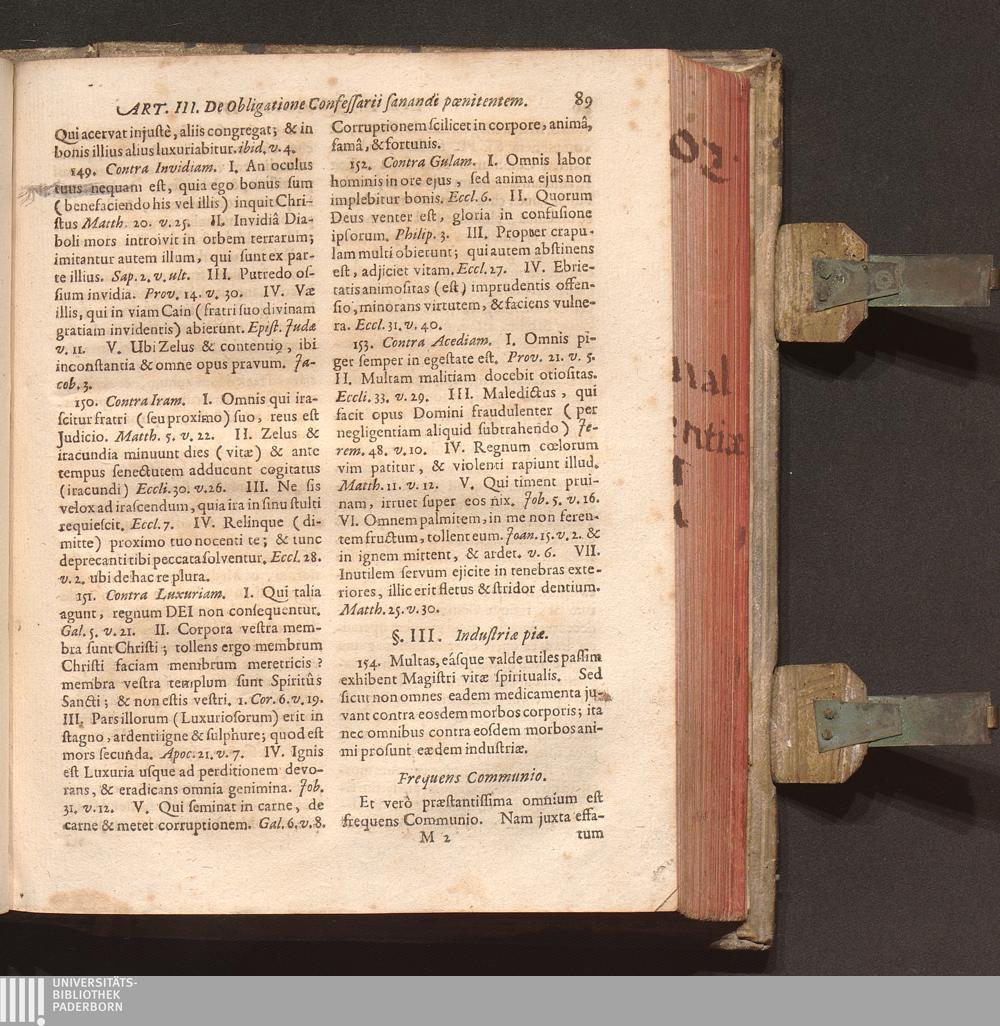 ART. III. De Obligatione Confeſſarii ſanandi pœnitentem. 89
Qui acervat injuſtè, aliis congregat; & in
bonis illius alius luxuriabitur. ibid. v. 4.
149. Contra Invidiam. I. An oculus
tuus nequam eſt, quia ego bonus ſum
(benefaciendo his vel illis) inquit Chri-
ſtus Matth. 20. v. 25. II. Invidiâ Dia-
boli mors introivit in orbem terrarum;
imitantur autem illum, qui ſunt ex par-
te illius. Sap. 2. v. ult. III. Putredo oſ-
ſium invidia. Prov. 14. v. 30. IV. Væ
illis, qui in viam Cain (fratri ſuo divinam
gratiam invidentis) abierunt. Epiſt. Judæ
v. 11. V. Ubi Zelus & contentio, ibi
inconſtantia & omne opus pravum. Ja-
cob. 3.
150. Contra Iram. I. Omnis qui ira-
ſcitur fratri (ſeu proximo) ſuo, reus eſt
Judicio. Matth. 5. v. 22. II. Zelus &
iracundia minuunt dies (vitæ) & ante
tempus ſenectutem adducunt cogitatus
(iracundi) Eccli. 30. v. 26. III. Ne ſis
velox ad iraſcendum, quia ira in ſinu ſtulti
requieſcit. Eccl. 7. IV. Relinque (di-
mitte) proximo tuo nocenti te; & tunc
deprecanti tibi peccata ſolventur. Eccl. 28.
v. 2. ubi de hac re plura.
151. Contra Luxuriam. I. Qui talia
agunt, regnum DEI non conſequentur.
Gal. 5. v. 21. II. Corpora veſtra mem-
bra ſunt Chriſti; tollens ergo membrum
Chriſti faciam membrum meretricis?
membra veſtra templum ſunt Spiritûs
Sancti; & non eſtis veſtri. 1. Cor. 6. v. 19.
III. Pars illorum (Luxurioſorum) erit in
ſtagno, ardenti igne & ſulphure; quod eſt
mors ſecunda. Apoc. 21. v. 7. IV. Ignis
eſt Luxuria uſque ad perditionem devo-
rans, & eradicans omnia genimina. Job.
31. v. 12. V. Qui ſeminat in carne, de
carne & metet corruptionem. Gal. 6. v. 8.
Corruptionem ſcilicet in corpore, animâ,
famâ, & fortunis.
152. Contra Gulam. I. Omnis labor
hominis in ore ejus, ſed anima ejus non
implebitur bonis. Eccl. 6. II. Quorum
Deus venter eſt, gloria in confuſione
ipſorum. Philip. 3. III. Propter crapu-
lam multi obierunt; qui autem abſtinens
eſt, adjiciet vitam. Eccl. 27. IV. Ebrie-
tatis animoſitas (eſt) imprudentis offen-
ſio, minorans virtutem, & faciens vulne-
ra. Eccl. 31. v. 40.
153. Contra Acediam. I. Omnis pi-
ger ſemper in egeſtate eſt. Prov. 21. v. 5.
II. Multam malitiam docebit otioſitas.
Eccli. 33. v. 29. III. Maledictus, qui
facit opus Domini fraudulenter (per
negligentiam aliquid ſubtrahendo) Je-
rem. 48. v. 10. IV. Regnum cœlorum
vim patitur, & violenti rapiunt illud.
Matth. 11. v. 12. V. Qui timent prui-
nam, irruet ſuper eos nix. Job. 5. v. 16.
VI. Omnem palmitem, in me non feren-
tem fructum, tollent eum. Joan. 15. v. 2. &
in ignem mittent, & ardet. v. 6. VII.
Inutilem ſervum ejicite in tenebras exte-
riores, illic erit fletus & ſtridor dentium.
Matth. 25. v. 30.
§. III. Induſtriæ piæ.
154. Multas, eáſque valde utiles paſſim
exhibent Magiſtri vitæ ſpiritualis. Sed
ſicut non omnes eadem medicamenta ju-
vant contra eosdem morbos corporis; ita
nec omnibus contra eoſdem morbos ani-
mi proſunt eædem induſtriæ.
Frequens Communio.
Et verò præſtantiſſima omnium eſt
frequens Communio. Nam juxta effa-
M 2 tum
nal
entiæ
UNIVERSITÄTS-
BIBLIOTHEK
PADERBORN